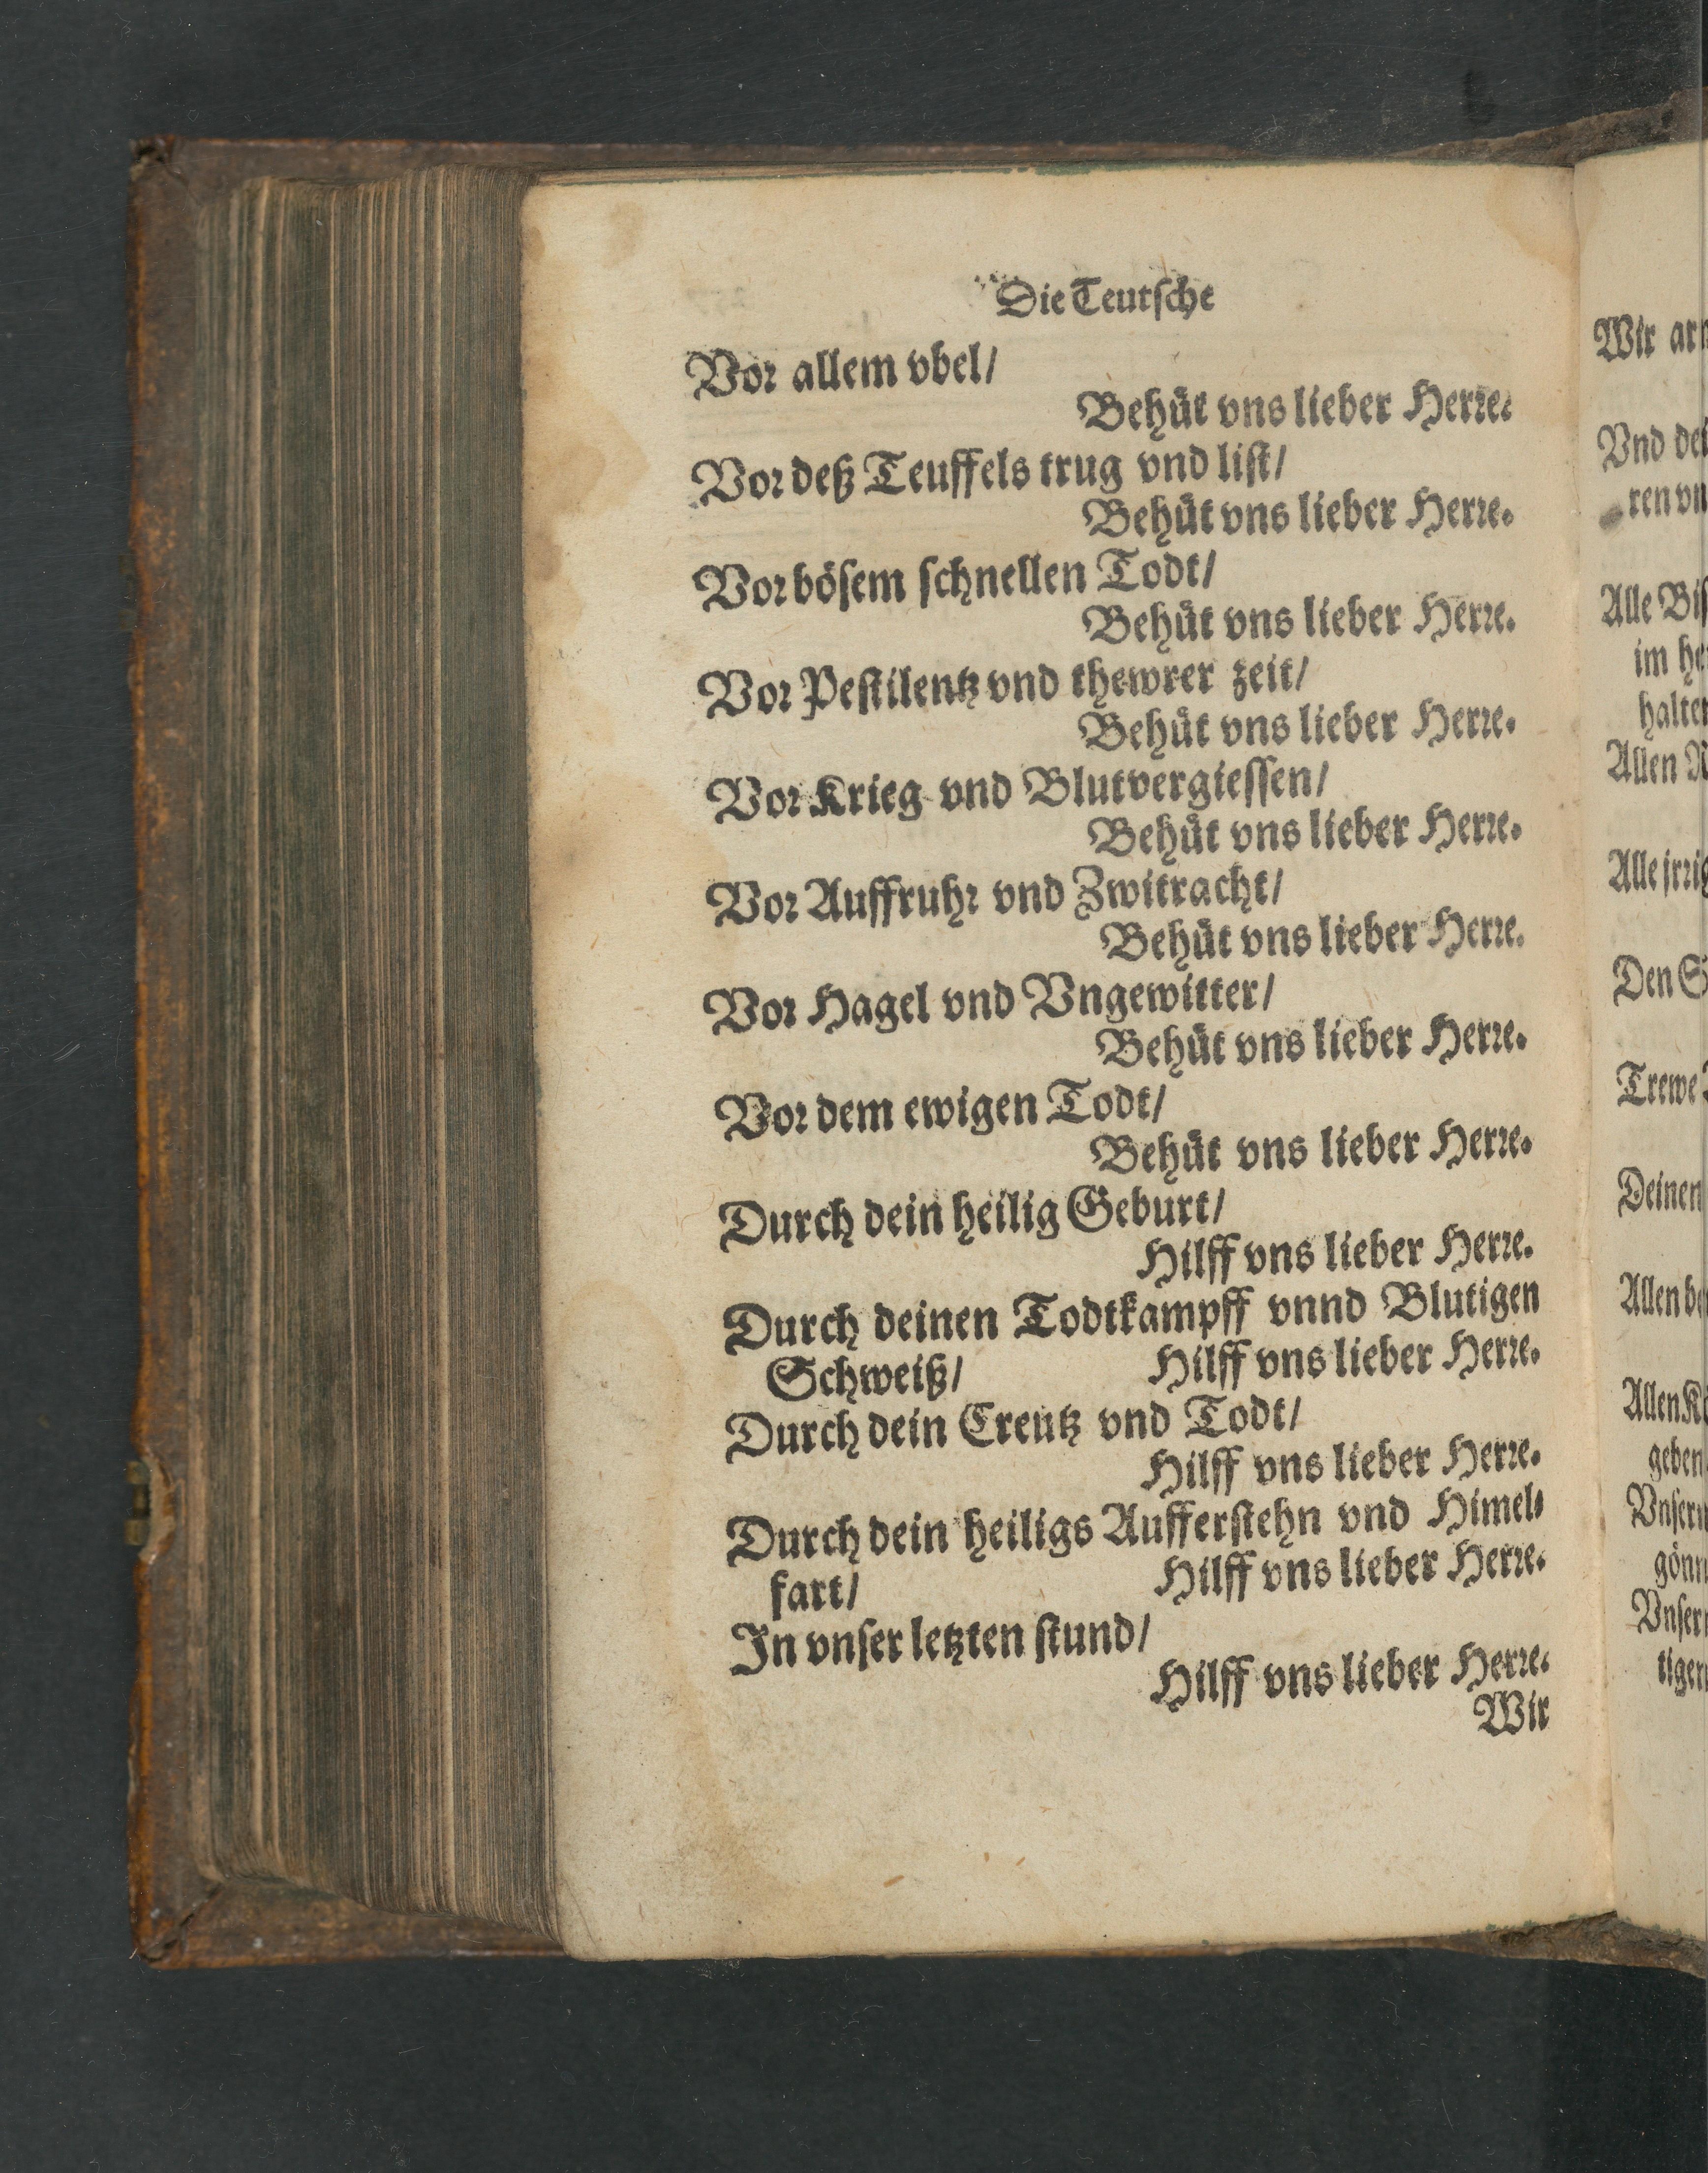 Die Teutsche
Vor allem vbel/
Behüt vns lieber Herre.
Vor deß Teuffels trug vnd list/
Behüt vns lieber Herre.
Vor bösem schnellen Todt/
Behüt vns lieber Herre.
Vor Pestilentz vnd thewrer zeit/
Behüt vns lieber Herre.
Vor Krieg vnd Blutvergiessen/
Behüt vns lieber Herre.
Vor Auffruhr vnd Zwitracht/
Behüt vns lieber Herre.
Vor Hagel vnd Vngewitter/
Behüt vns lieber Herre.
Vor dem ewigen Todt/
Behüt vns lieber Herre.
Durch dein heilig Geburt/
Hilff vns lieber Herre.
Durch deinen Todtkampff vnnd Blutigen
Schweiß/ Hilff vns lieber Herre.
Durch dein Creutz vnd Todt/
Hilff vns lieber Herre.
Durch dein heiligs Aufferstehn vnd Himel-
fart/ Hilff vns lieber Herre.
In vnser letzten stund/
Hilff vns lieber Herre.
Wir
Wir
Vnd
ren
Alle
im
Allen
Alle
Den
Trewe
Deinen
Allen
Allen
geben